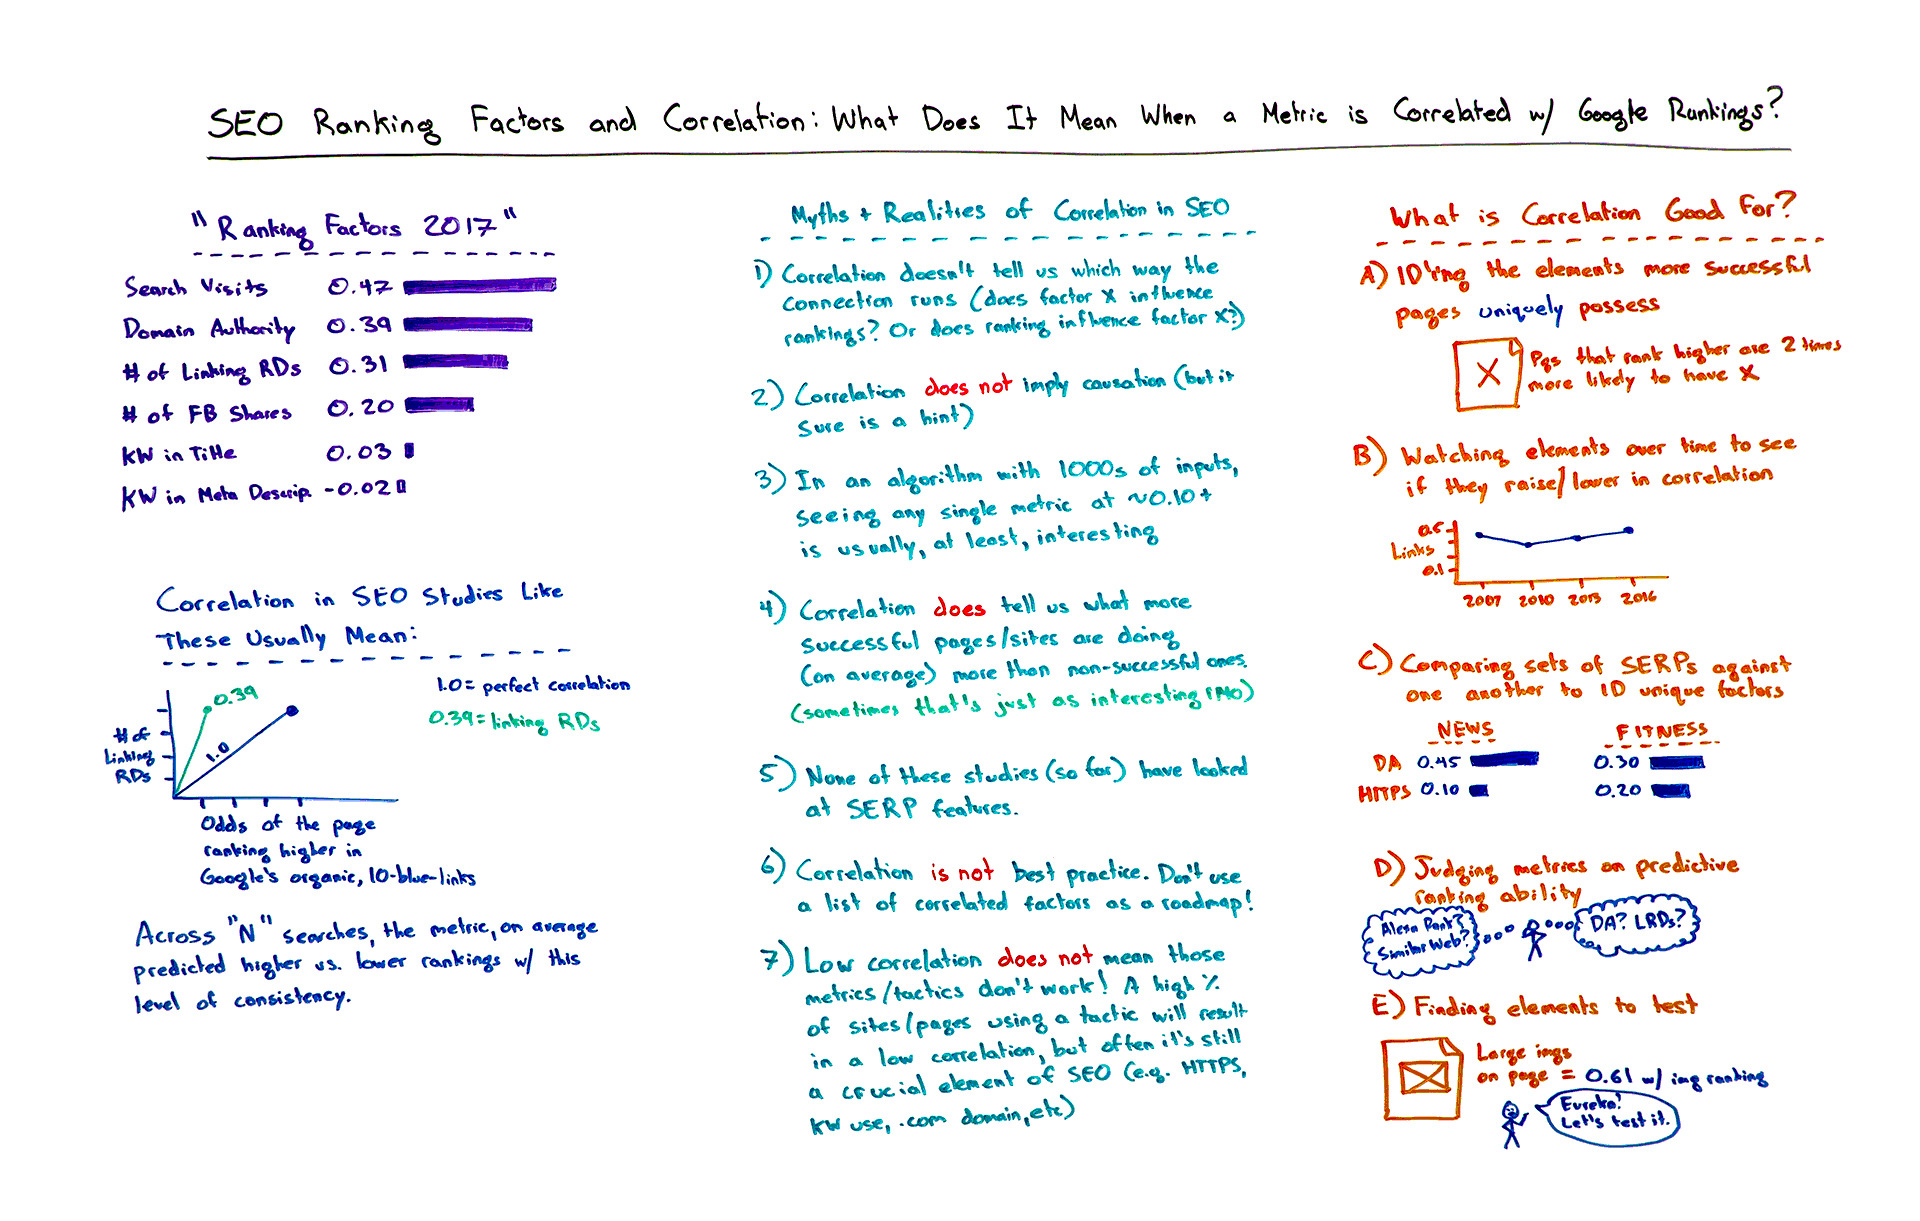 SEO Ranking Factors and Correlation: What Does It Mean When a Metric is Correlated w/ Google Rankings?
"Ranking Factors 2017"
Search Visits 0.47
Domain Authority 0.39
# of Linking RDs 0.31
# of FB Shares 0.20
KW in Title 0.03
KW in Meta Descrip. -0.02
Correlation in SEO Studies Like
These Usually Mean:
1.0 = perfect correlation
0.39 = linking RDs
0.39
1.0
# of
Linking
RDs
Odds of the page
ranking higher in
Google's organic, 10-blue-links
Across "N" searches, the metric, on average
predicted higher vs. lower rankings w/ this
level of consistency.
Myths + Realities of Correlation in SEO
1) Correlation doesn't tell us which way the
connection runs (does factor X influence
rankings? Or does ranking influence factor X?)
2) Correlation does not imply causation (but it
sure is a hint)
3) In an algorithm with 1000s of inputs,
seeing any single metric at ~0.10+
is usually, at least, interesting
4) Correlation does tell us what more
successful pages/sites are doing
(on average) more than non-successful ones.
(sometimes that's just as interesting IMO)
5) None of these studies (so far) have looked
at SERP features.
6) Correlation is not best practice. Don't use
a list of correlated factors as a roadmap!
7) Low correlation does not mean those
metrics/tactics don't work! A high %
of sites/pages using a tactic will result
in a low correlation, but often it's still
a crucial element of SEO (e.g. HTTPS,
KW use, .com domain, etc)
What is Correlation Good For?
A) ID'ing the elements more successful
pages uniquely possess
X
Pgs that rank higher are 2 times
more likely to have X
B) Watching elements over time to see
if they raise/lower in correlation
0.5
Links
0.1
2007 2010 2013 2016
C) Comparing sets of SERPs against
one another to ID unique factors
NEWS FITNESS
DA 0.45 0.30
HTTPS 0.10 0.20
D) Judging metrics on predictive
ranking ability
Alexa Rank?
Similar Web?
DA? LRDs?
E) Finding elements to test
Large imgs
on page = 0.61 w/ img ranking
Eureka!
Let's test it.